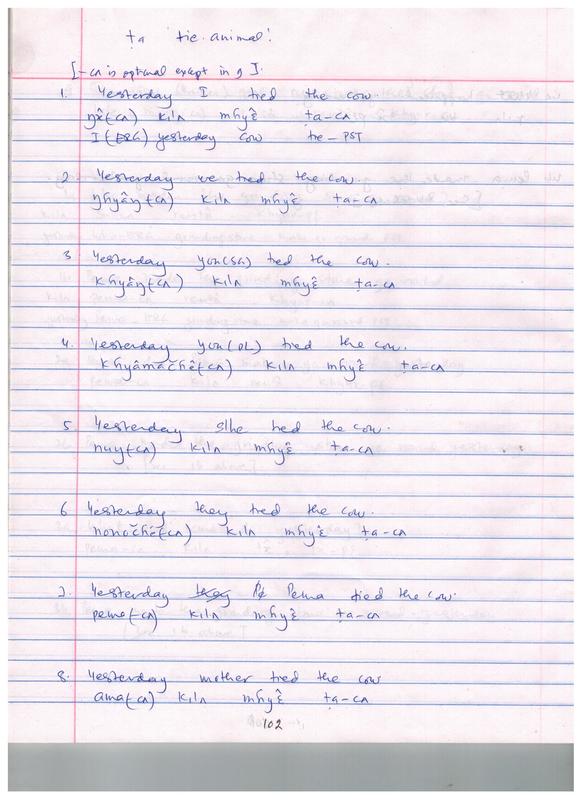 ṭa 'tie.animal'.
[-cʌ is optional except in 9 I.
1. Yesterday I tied the cow.
ŋʌ̂(cʌ) kilʌ mɦyɛ̂ ṭa-cʌ
I (ERG) yesterday cow tie-PST
2. Yesterday we tied the cow.
ŋɦyâŋ(cʌ) kilʌ mɦyɛ̂ ṭa-cʌ
3. Yesterday you(SG) tied the cow.
kɦyâŋ(cʌ) kilʌ mɦyɛ̂ ṭa-cʌ
4. Yesterday you(PL) tied the cow.
kɦyâmačɦê(cʌ) kilʌ mɦyɛ̂ ṭa-cʌ
5. Yesterday s/he tied the cow.
nuy(-cʌ) kilʌ mɦyɛ̂ ṭa-cʌ
6 Yesterday they tied the cow.
nonočɦê(-cʌ) kilʌ mɦyɛ̂ ṭa-cʌ
7. Yesterday Pema tied the cow.
peme(-cʌ) kilʌ mɦyɛ̂ ṭa-cʌ
8. Yesterday mother tied the cow
ama(-cʌ) kilʌ mɦyɛ̂ ṭa-cʌ
102